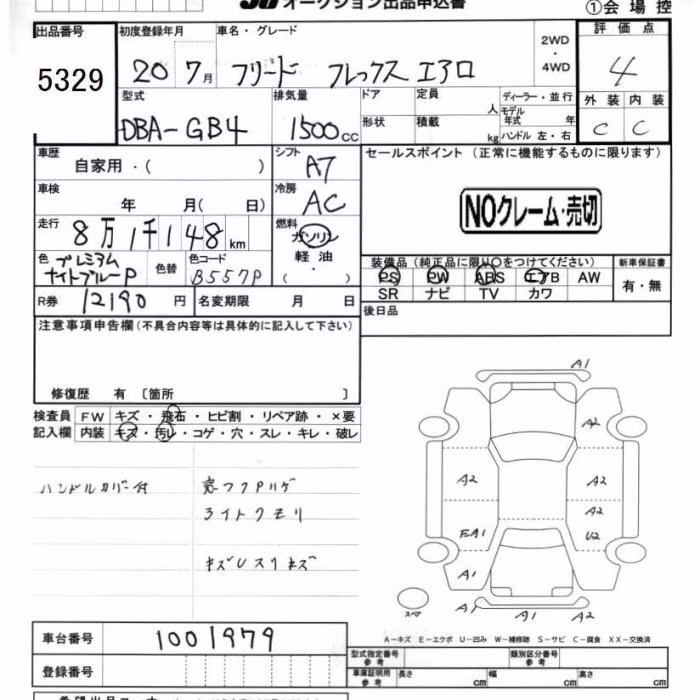 オークション出品申込書
①会場控
出品番号
5329
初度登録年月
20 7月
車名・グレード
フリード フレックス エアロ
2WD
・
4WD
評価点
4
外装 内装
C C
型式
DBA-GB4
排気量
1500cc
ドア
形状
定員
人
積載
kg
ディーラー・並行
モデル年式 年
ハンドル 左・右
車歴
自家用・( )
シフト
A7
セールスポイント (正常に機能するものに限ります)
NOクレーム・売切
車検
年 月( 日)
冷房
AC
走行
8万1千148km
燃料
ガソリン
軽油
( )
色 プレミアム
ナイトブルーP
色替
色コード
B557P
装備品(純正品に限り○をつけてください)
PS PW ABS エアB AW
SR ナビ TV カワ
新車保証書
有・無
R券 12190円
名変期限 月 日
後日品
注意事項申告欄(不具合内容等は具体的に記入して下さい)
修復歴 有 〔箇所 〕
検査員 FW キズ・飛石・ヒビ割・リペア跡・×要
記入欄 内装 キズ・汚レ・コゲ・穴・スレ・キレ・破レ
ハンドルカバー付
ライトクモリ
A1
A2
A2 A2
EA1 U2
A1
A1 A1 A2
スペア
A-キズ E-エクボ U-凹み W-補修跡 S-サビ C-腐食 XX-交換済
車台番号 1001979
登録番号
型式指定番号
参考
類別区分番号
参考
車庫証明用
参考
長さ cm 幅 cm 高さ cm